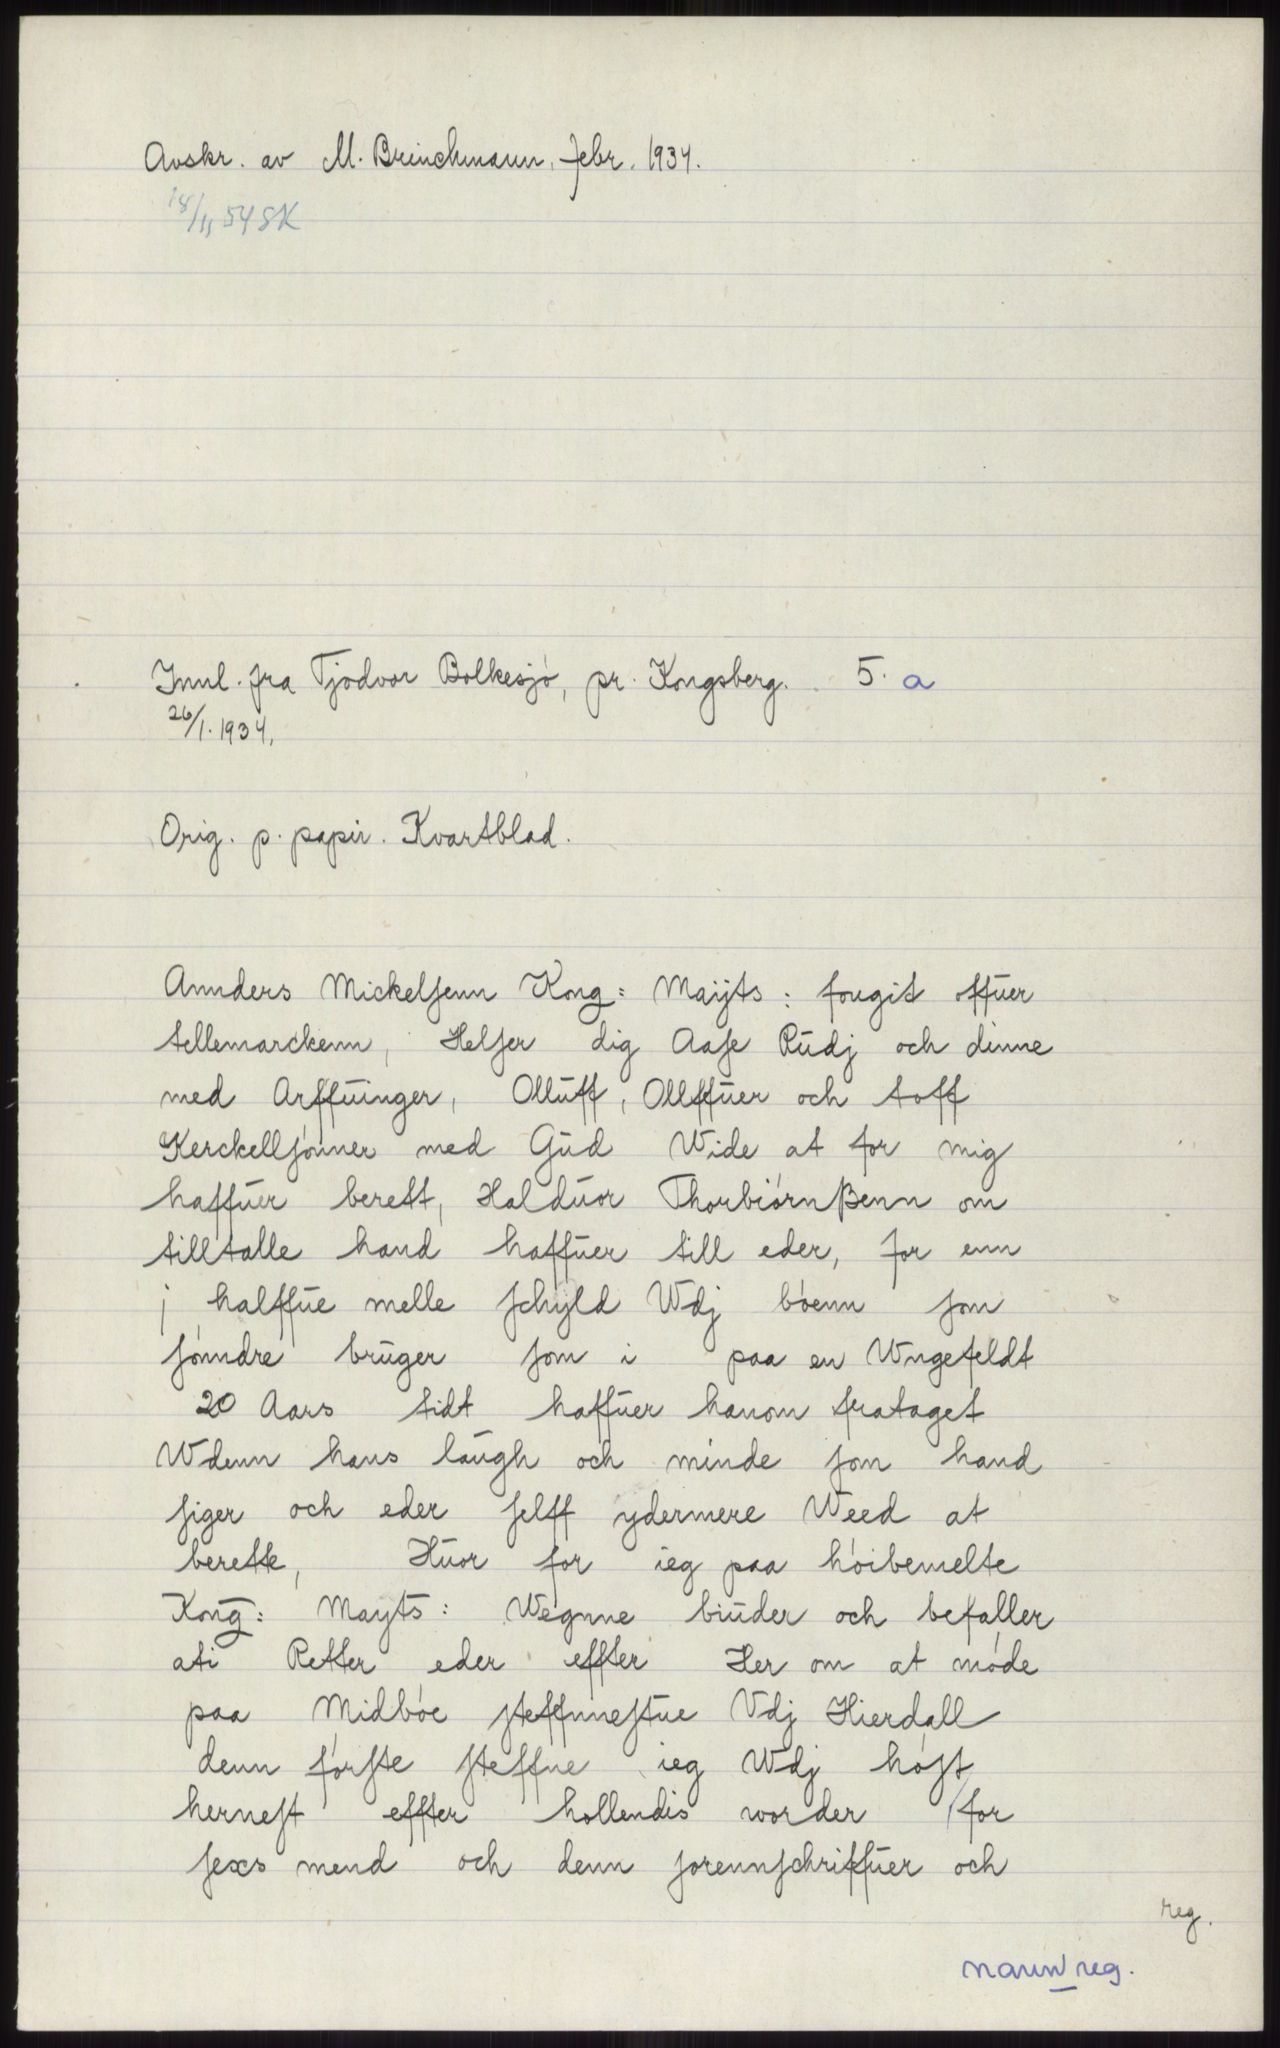 Avskr. av M. Brinchmann, febr. 1934.
18/11 54 SK
Innl. fra Tjodvor Bolkesjö, pr. Kongsberg. 5. a
26/1. 1934.
Orig. p. papir. Kvartblad.
Annders Mickelsenn Kong: Maÿts: fougit offuer
tellemarckenn, Helser dig Aase Rudj och dinne
med Arffuinger, Olluff, Ollffuer och toff
Kerckellsönner med Gud Wide at for mig
haffuer berett, Halduor Thorbiörnßenn om
tilltalle hand haffuer till eder, for enn
j halffue melle schyld Wdj böenn som
sönndre bruger som i paa en Wngefeldt
20 Aars tidt haffuer hanom frataget
Wdenn hans laugh och minde som hand
siger och eder selff ydermere Weed at
berette, Huor for ieg paa höibemelte
Kong: Mayts: Wegnne biuder och befaller
ati Retter eder effter Her om at möde
paa Midböe steffnnestue Vdj Hierdall
denn förste steffne ieg Wdj höst
hernest effter hollendis worder for
sexs mend och denn sorennschriffuer och
reg.
navn reg.